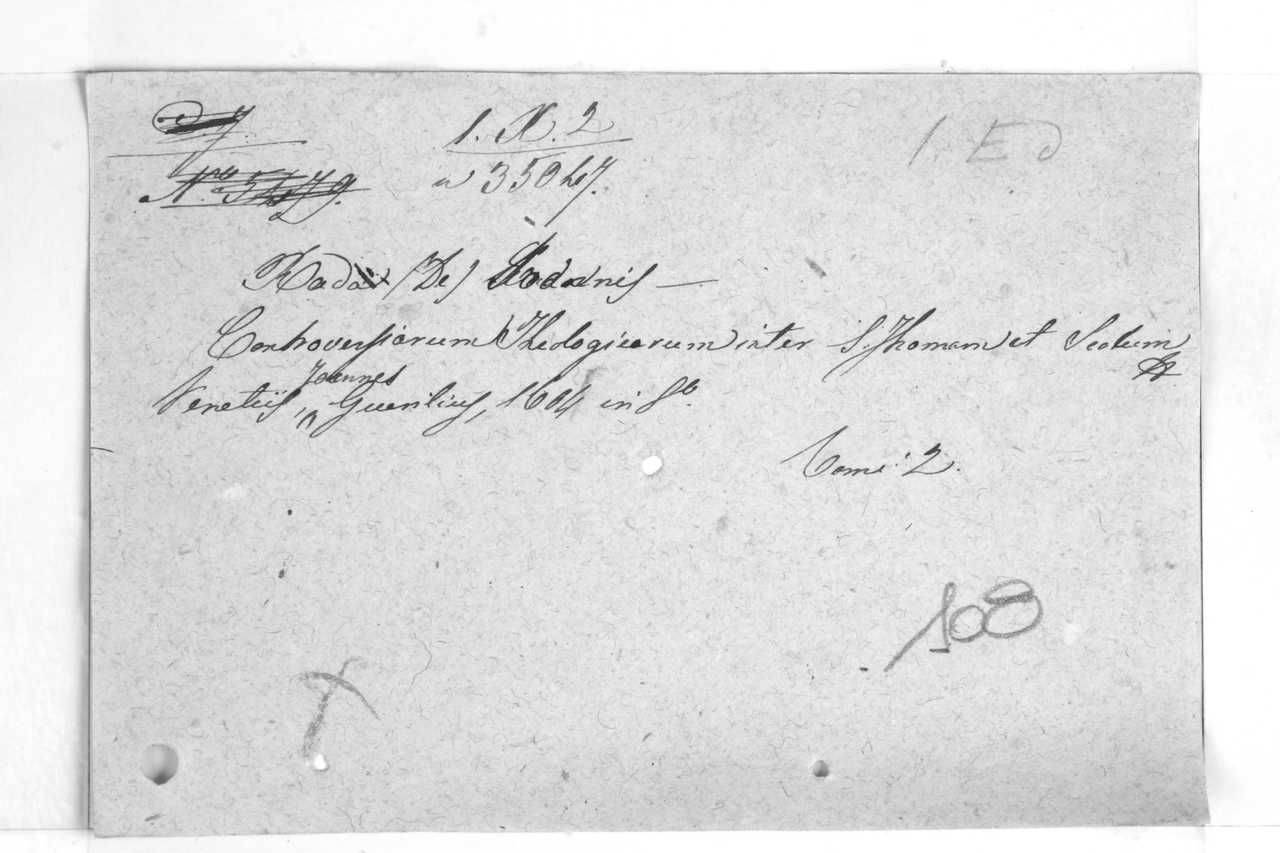 1. X. 2
1. E d
Rada (De) Joannis —
Controversiarum Theologicarum inter S. Thomam et Scotum
Venetiis, Joannes Guerilius, 1604 in 8º.
Tomi 2.
108